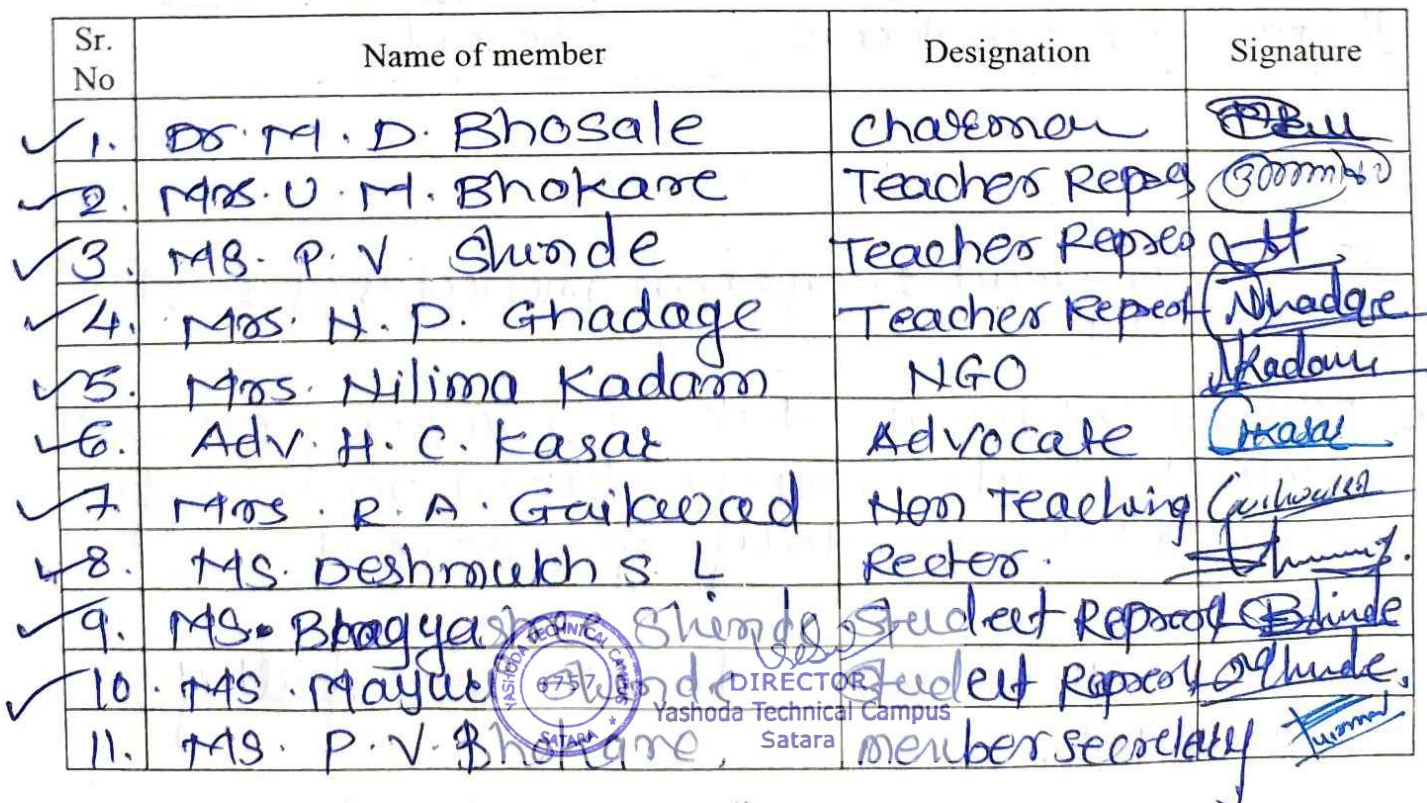 Sr. No Name of member Designation Signature
1. Dr. M. D. Bhosale Chairman
2. Mrs. U. M. Bhokare Teacher Repres
3. MS. P. V. Shinde Teacher Repres
4. Mrs. N. P. Ghadage Teacher Represt Nhadge
5. Mrs. Nilima Kadam NGO NKadam
6. Adv. H. C. Kasar Advocate HKasar
7 Mrs. R. A. Gaikwad Non Teaching
8. MS. Deshmukh S L Recter.
9. MS. Shinde Student Represt BShinde
10. MS. Shinde Student Represt
11. MS. P. V. Bhokare, member secretary
YASHODA TECHNICAL CAMPUS
6757
SATARA
DIRECTOR
Yashoda Technical Campus
Satara